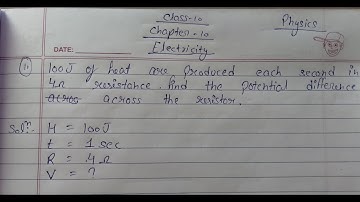 Class-10
Physics
Chapter-10
Electricity
DATE:
11 100J of heat are produced each second in
4Ω resistance. Find the potential difference
acros across the resistor.
Solⁿ- H = 100J
t = 1 sec
R = 4Ω
V = ?